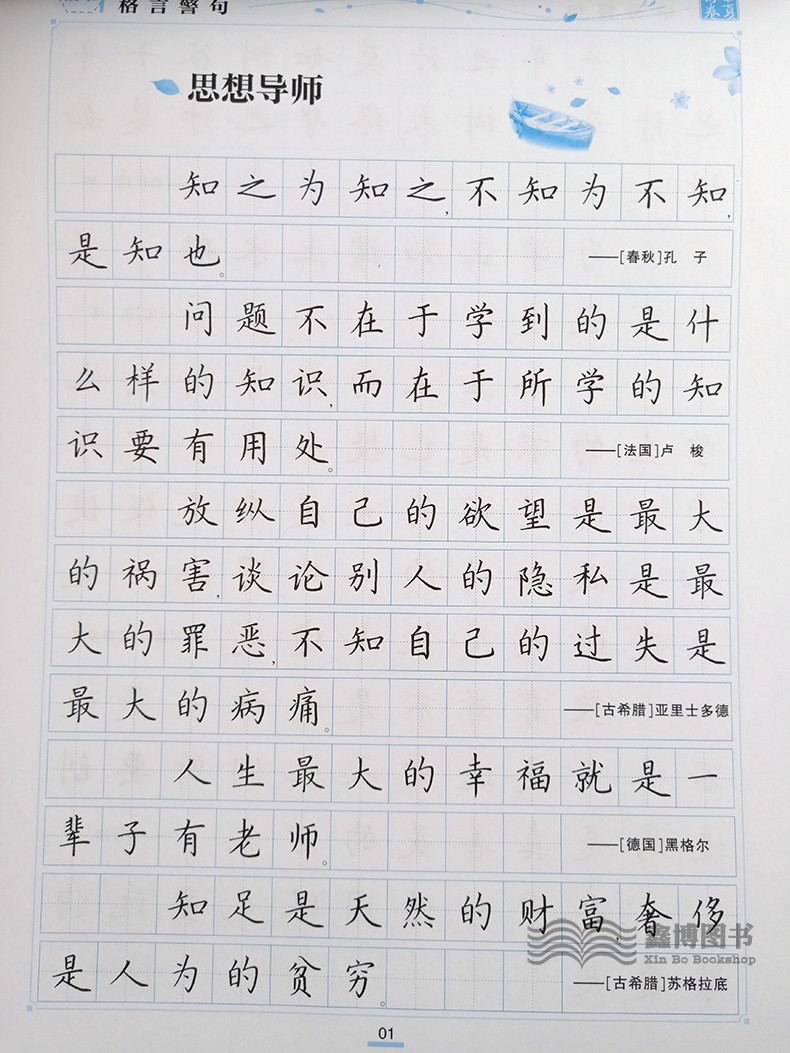 格言警句
思想导师
知之为知之,不知为不知,
是知也。 ——[春秋]孔 子
问题不在于学到的是什
么样的知识,而在于所学的知
识要有用处。 ——[法国]卢 梭
放纵自己的欲望是最大
的祸害,谈论别人的隐私是最
大的罪恶,不知自己的过失是
最大的病痛。 ——[古希腊]亚里士多德
人生最大的幸福就是一
辈子有老师。 ——[德国]黑格尔
知足是天然的财富,奢侈
是人为的贫穷。 ——[古希腊]苏格拉底
鑫博图书
Xin Bo Bookshop
01